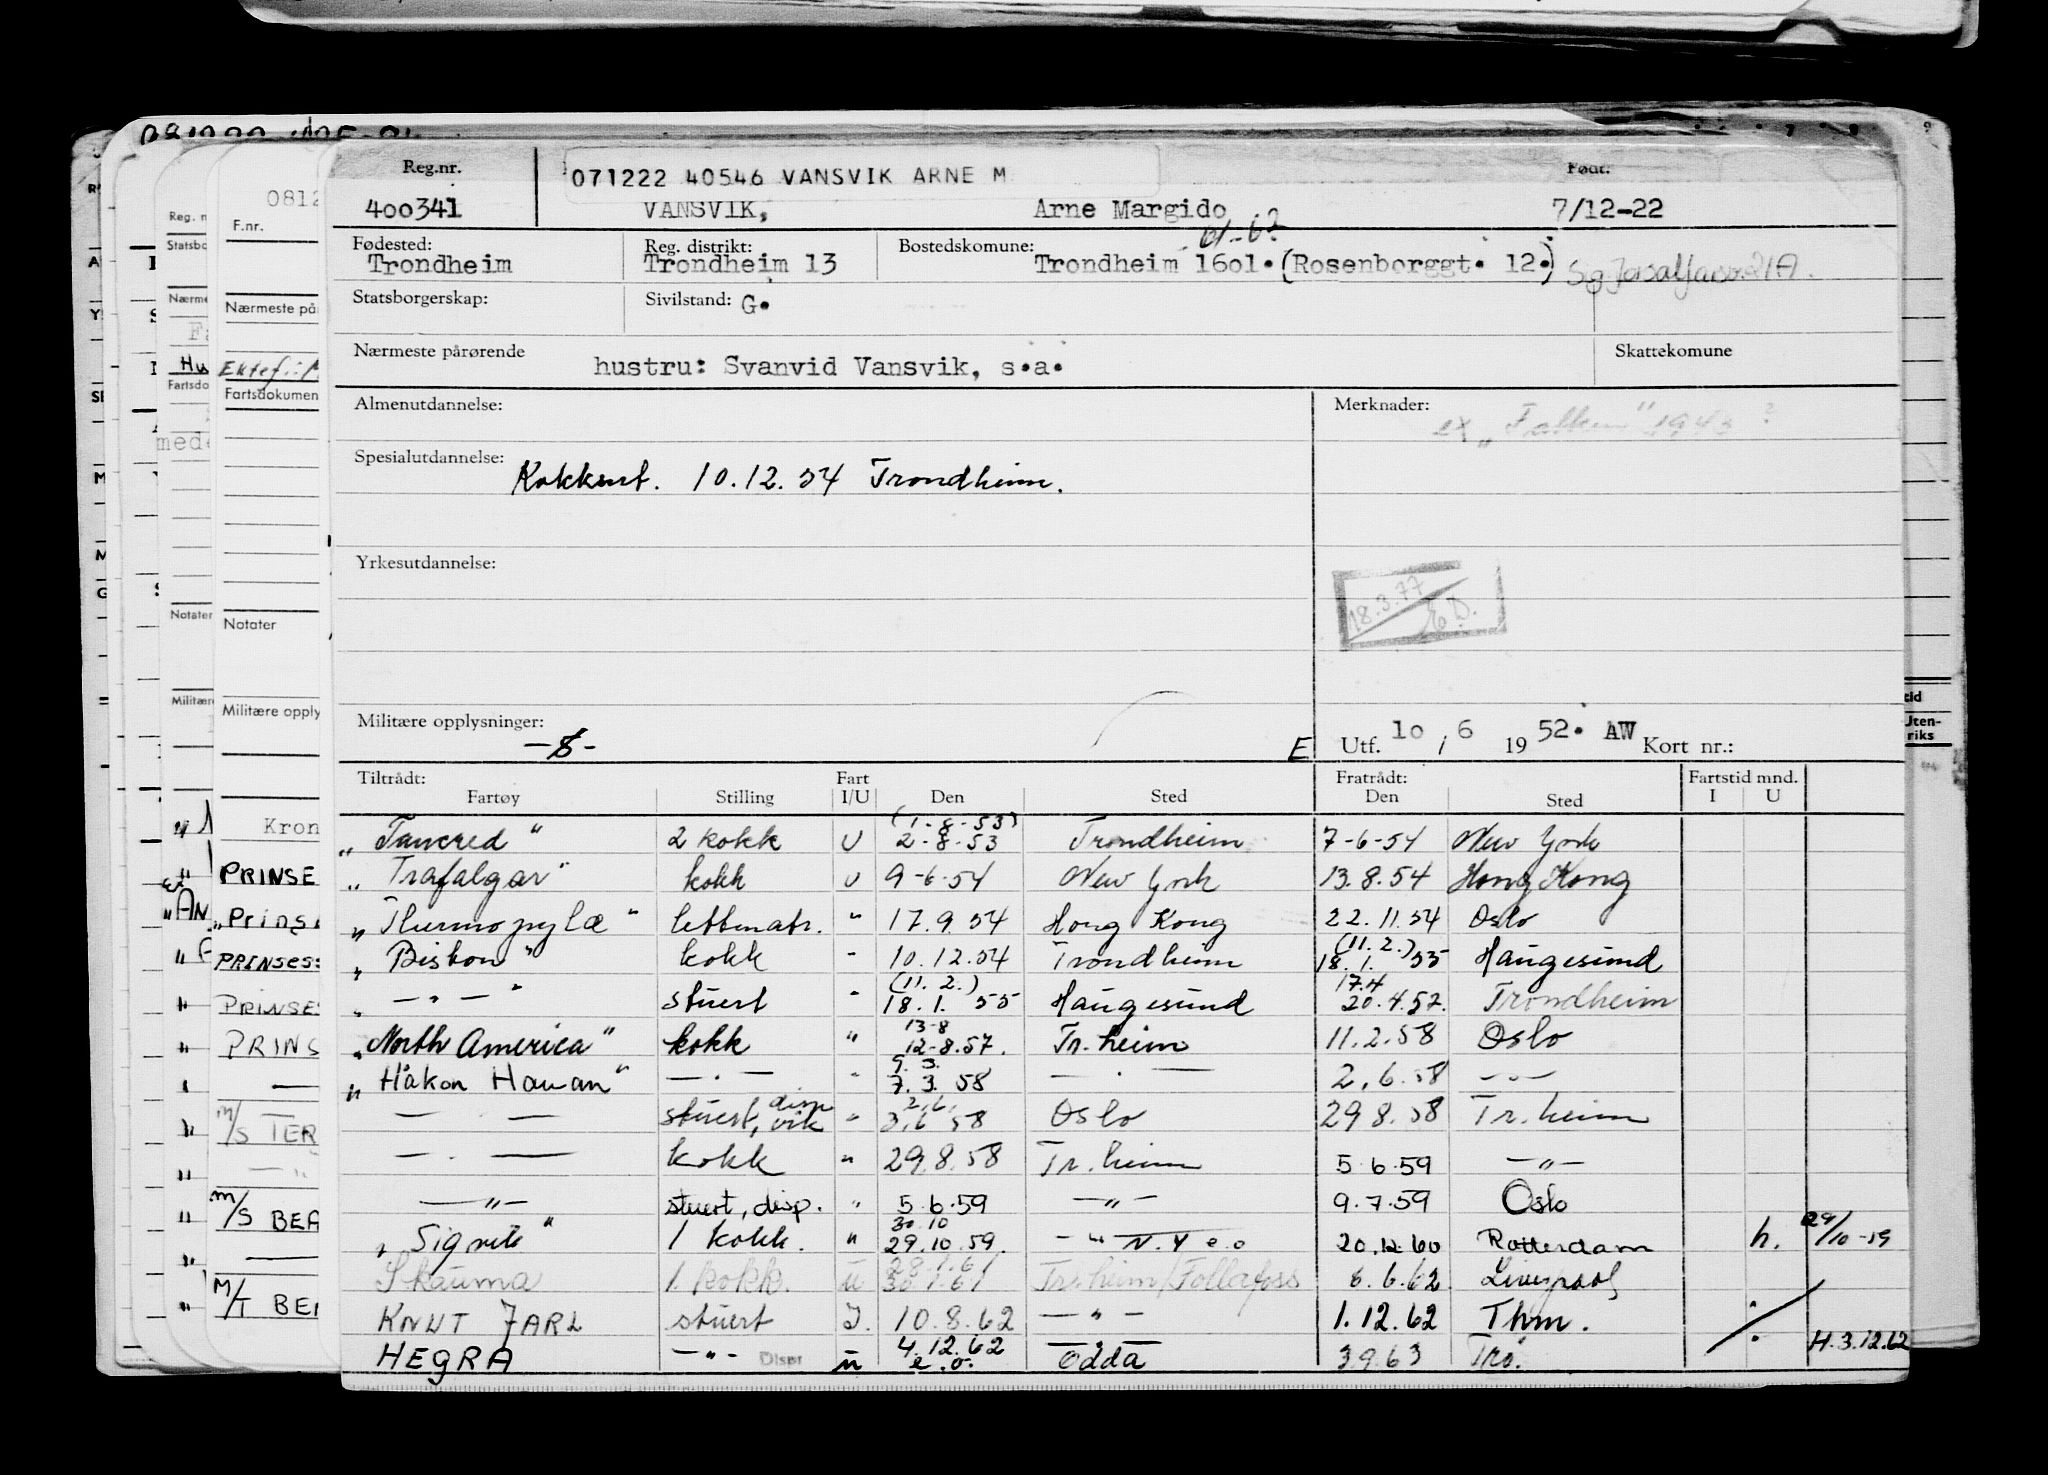 Reg.nr. 071222 40546 VANSVIK ARNE M Født:
400341 VANSVIK, Arne Margido 7/12-22
61-62
Fødested: Reg. distrikt: Bostedskomune:
Trondheim Trondheim 13 Trondheim 1601. (Rosenborggt. 12.)
Statsborgerskap: Sivilstand: G.
Nærmeste pårørende hustru: Svanvid Vansvik, s.a. Skattekomune
Almenutdannelse: Merknader: ex „Falken" 1943 ?
Spesialutdannelse: Kokksert. 10.12.54 Trondheim.
Yrkesutdannelse:
18.3.77
Militære opplysninger: E Utf. 10 / 6 1952. AW Kort nr.:
Tiltrådt: Fart Fratrådt: Fartstid mnd.
Fartøy Stilling I/U Den Sted Den Sted I U
(1-8-53)
„Tancred" 2 kokk U 2-8-53 Trondheim 7-6-54 New York
„Trafalgar" kokk U 9-6-54 New York 13.8.54 Hong Kong
„Thermopylæ" lettmatr. " 17.9.54 Hong Kong 22.11.54 Oslo
(11.2.)
„Biskon" kokk - 10.12.54 Trondheim 18.1.55 Haugesund
(11.2.) 17.4
„ — " — " stuert " 18.1.55 Haugesund 20.4.57. Trondheim
13-8
„North America" kokk " 12-8.57. Tr.heim 11.2.58 Oslo
9.3.
„Håkon Hauan" — . — " 7.3.58 — . — 2.6.58 — " —
2.6.
— — stuert, disp vik " 3.6.58 Oslo 29.8.58 Tr.heim
— . — kokk " 29.8.58 Tr.heim 5.6.59 — " —
— " — stuert, disp. " 5.6.59 — " — 9.7.59 Oslo
30.10
„Signeli" 1 kokk. " 29.10.59. — " — N.Y e.o 20.12.60 Rotterdam h. 29/10-59
28.1.61
Skauma 1. kokk. u 30.1.61 Tr.heim/Follafoss 6.6.62 Liverpool
KNUT JARL stuert I. 10.8.62 — " — 1.12.62 Thm.
HEGRA — " — Disp. u 4.12.62 e.o. Odda 3.9.63 Tro. H.3.12.62
0812
F.nr.
Nærmeste på
Ektef.:
Fartsdokumen
Notater
Militære opply
Kron
PRINSE
"Prins
PRINSES
PRINSE
PRINS
M/S TER
M/S BEA
M/T BE
Reg. n
Statsbo
Nærme
Hu
Fartsdo
mede
Notater
Militær